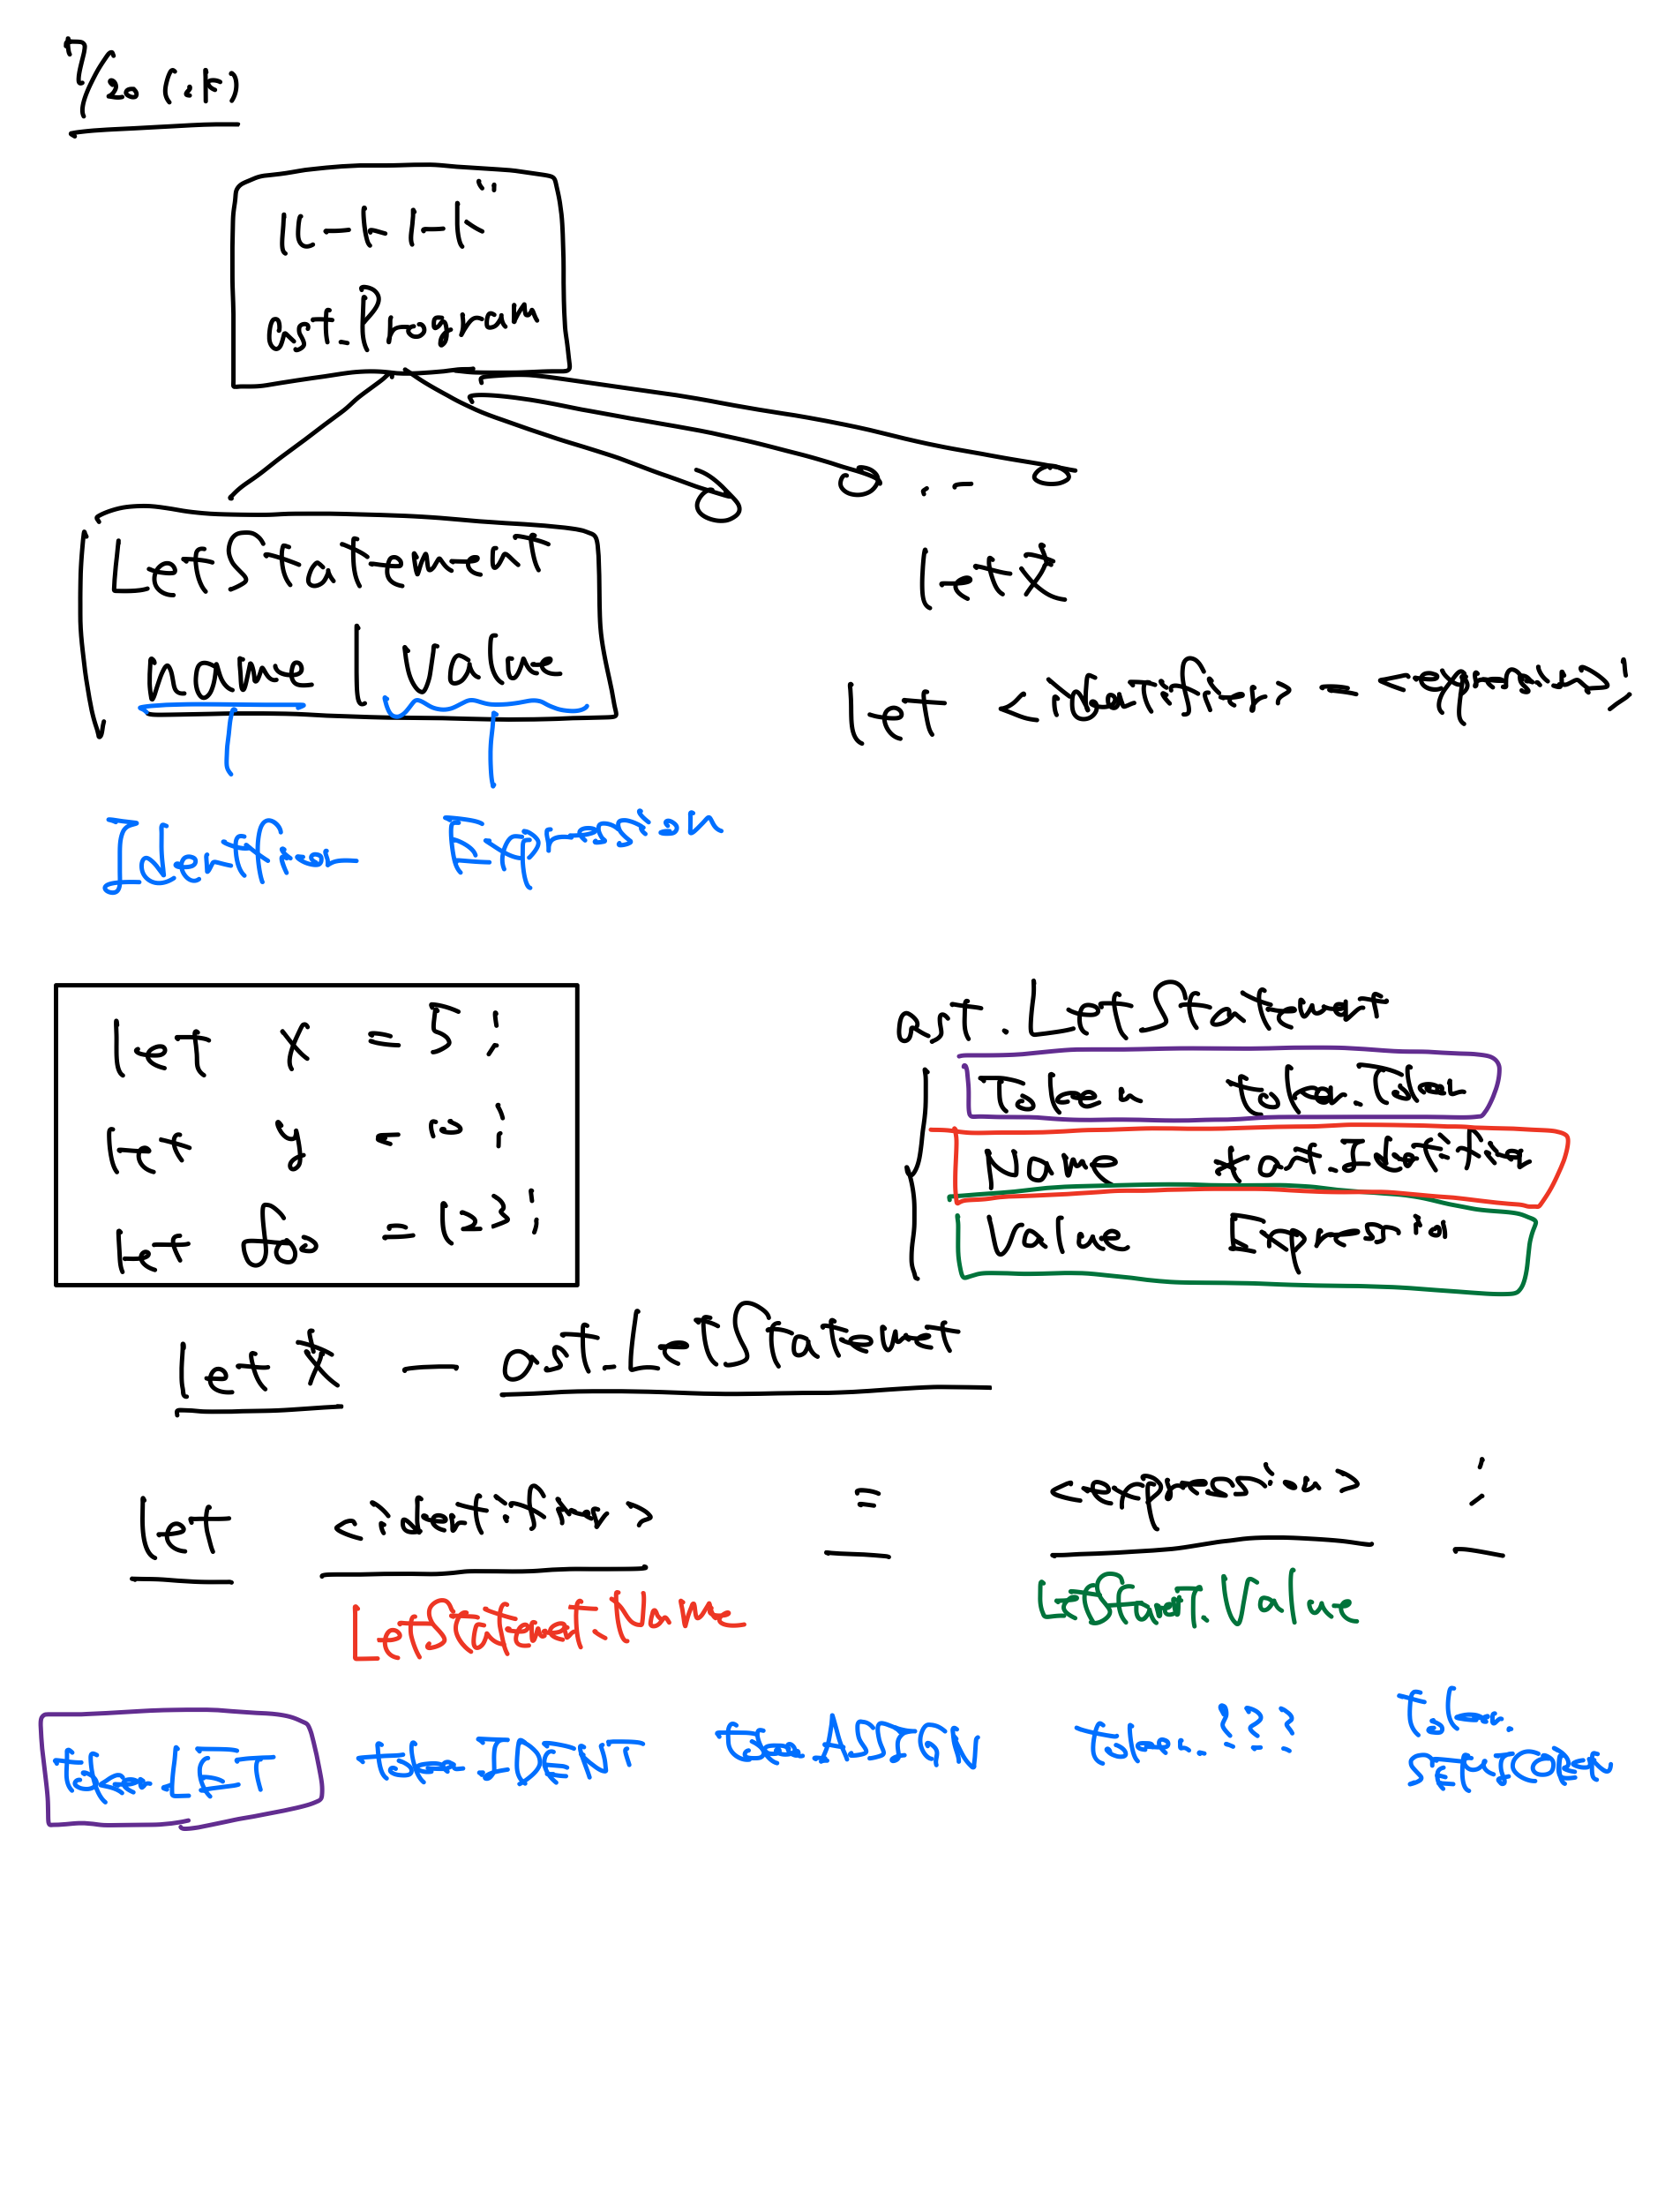 7/20 (水)
ルートノード
ast.Program
LetStatement
name | Value
Identifier
Expression
let文
let <identifier> = <expression>;
let x = 5;
let y = 10;
let foo = 123;
ast.LetStatement
Token token.Token
Name *ast.Identifier
Value Expression
let文 — ast.LetStatement
let <identifier> = <expression> ;
LetStatement.Name
LetStatement.Value
token.LET token.IDENT token.ASSIGN token.??? token.
SEMICOLON